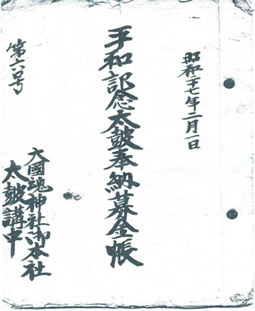 昭和二十七年二月一日
平和記念太鼓奉納募金帳
第六号
大國魂神社御本社
太鼓講中